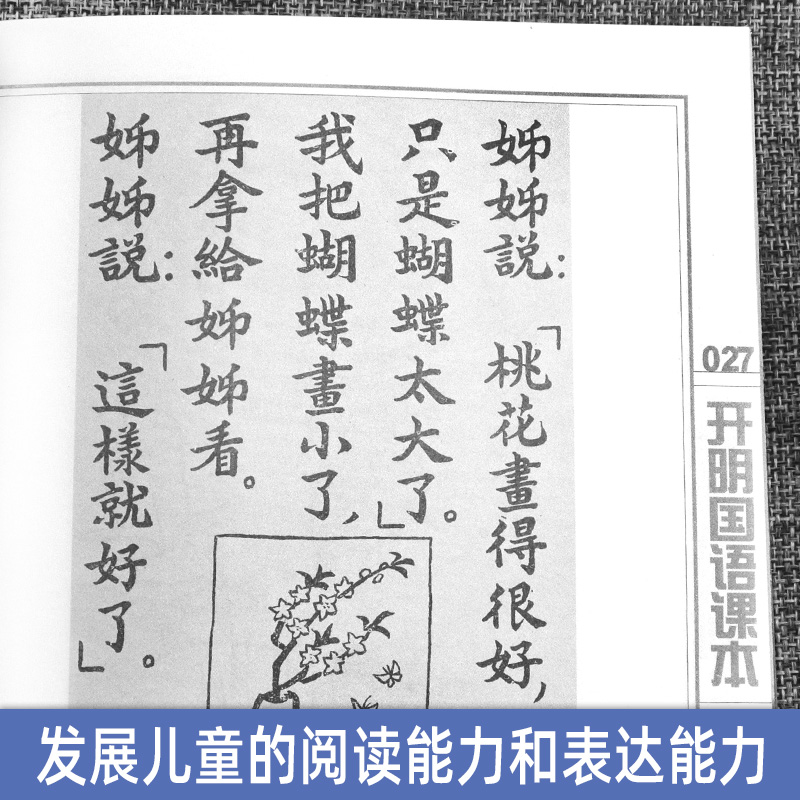 姊姊説：「桃花畫得很好，
只是蝴蝶太大了。」
我把蝴蝶畫小了，
再拿給姊姊看。
姊姊説：「這樣就好了。」
027
开明国语课本
发展儿童的阅读能力和表达能力